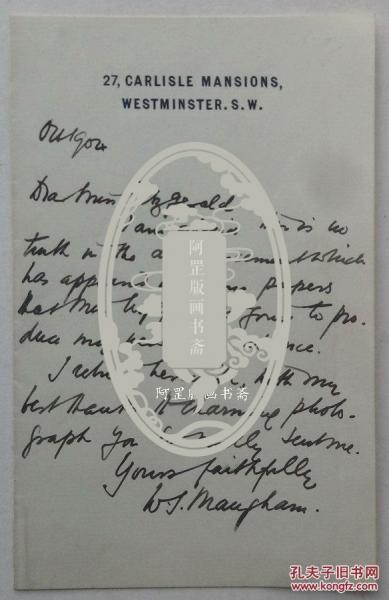 27, CARLISLE MANSIONS,
WESTMINSTER. S.W.
Oct 1904
Dear Miss gerald
I am there is no
truth in the a ement which
has appeared papers
that Mr. going to pro-
duce my
I return with my
best thanks charming photo-
graph you kindly sent me.
Yours faithfully
W. S. Maugham.
阿罡版画书斋
阿罡版画书斋
孔夫子旧书网
www.kongfz.com